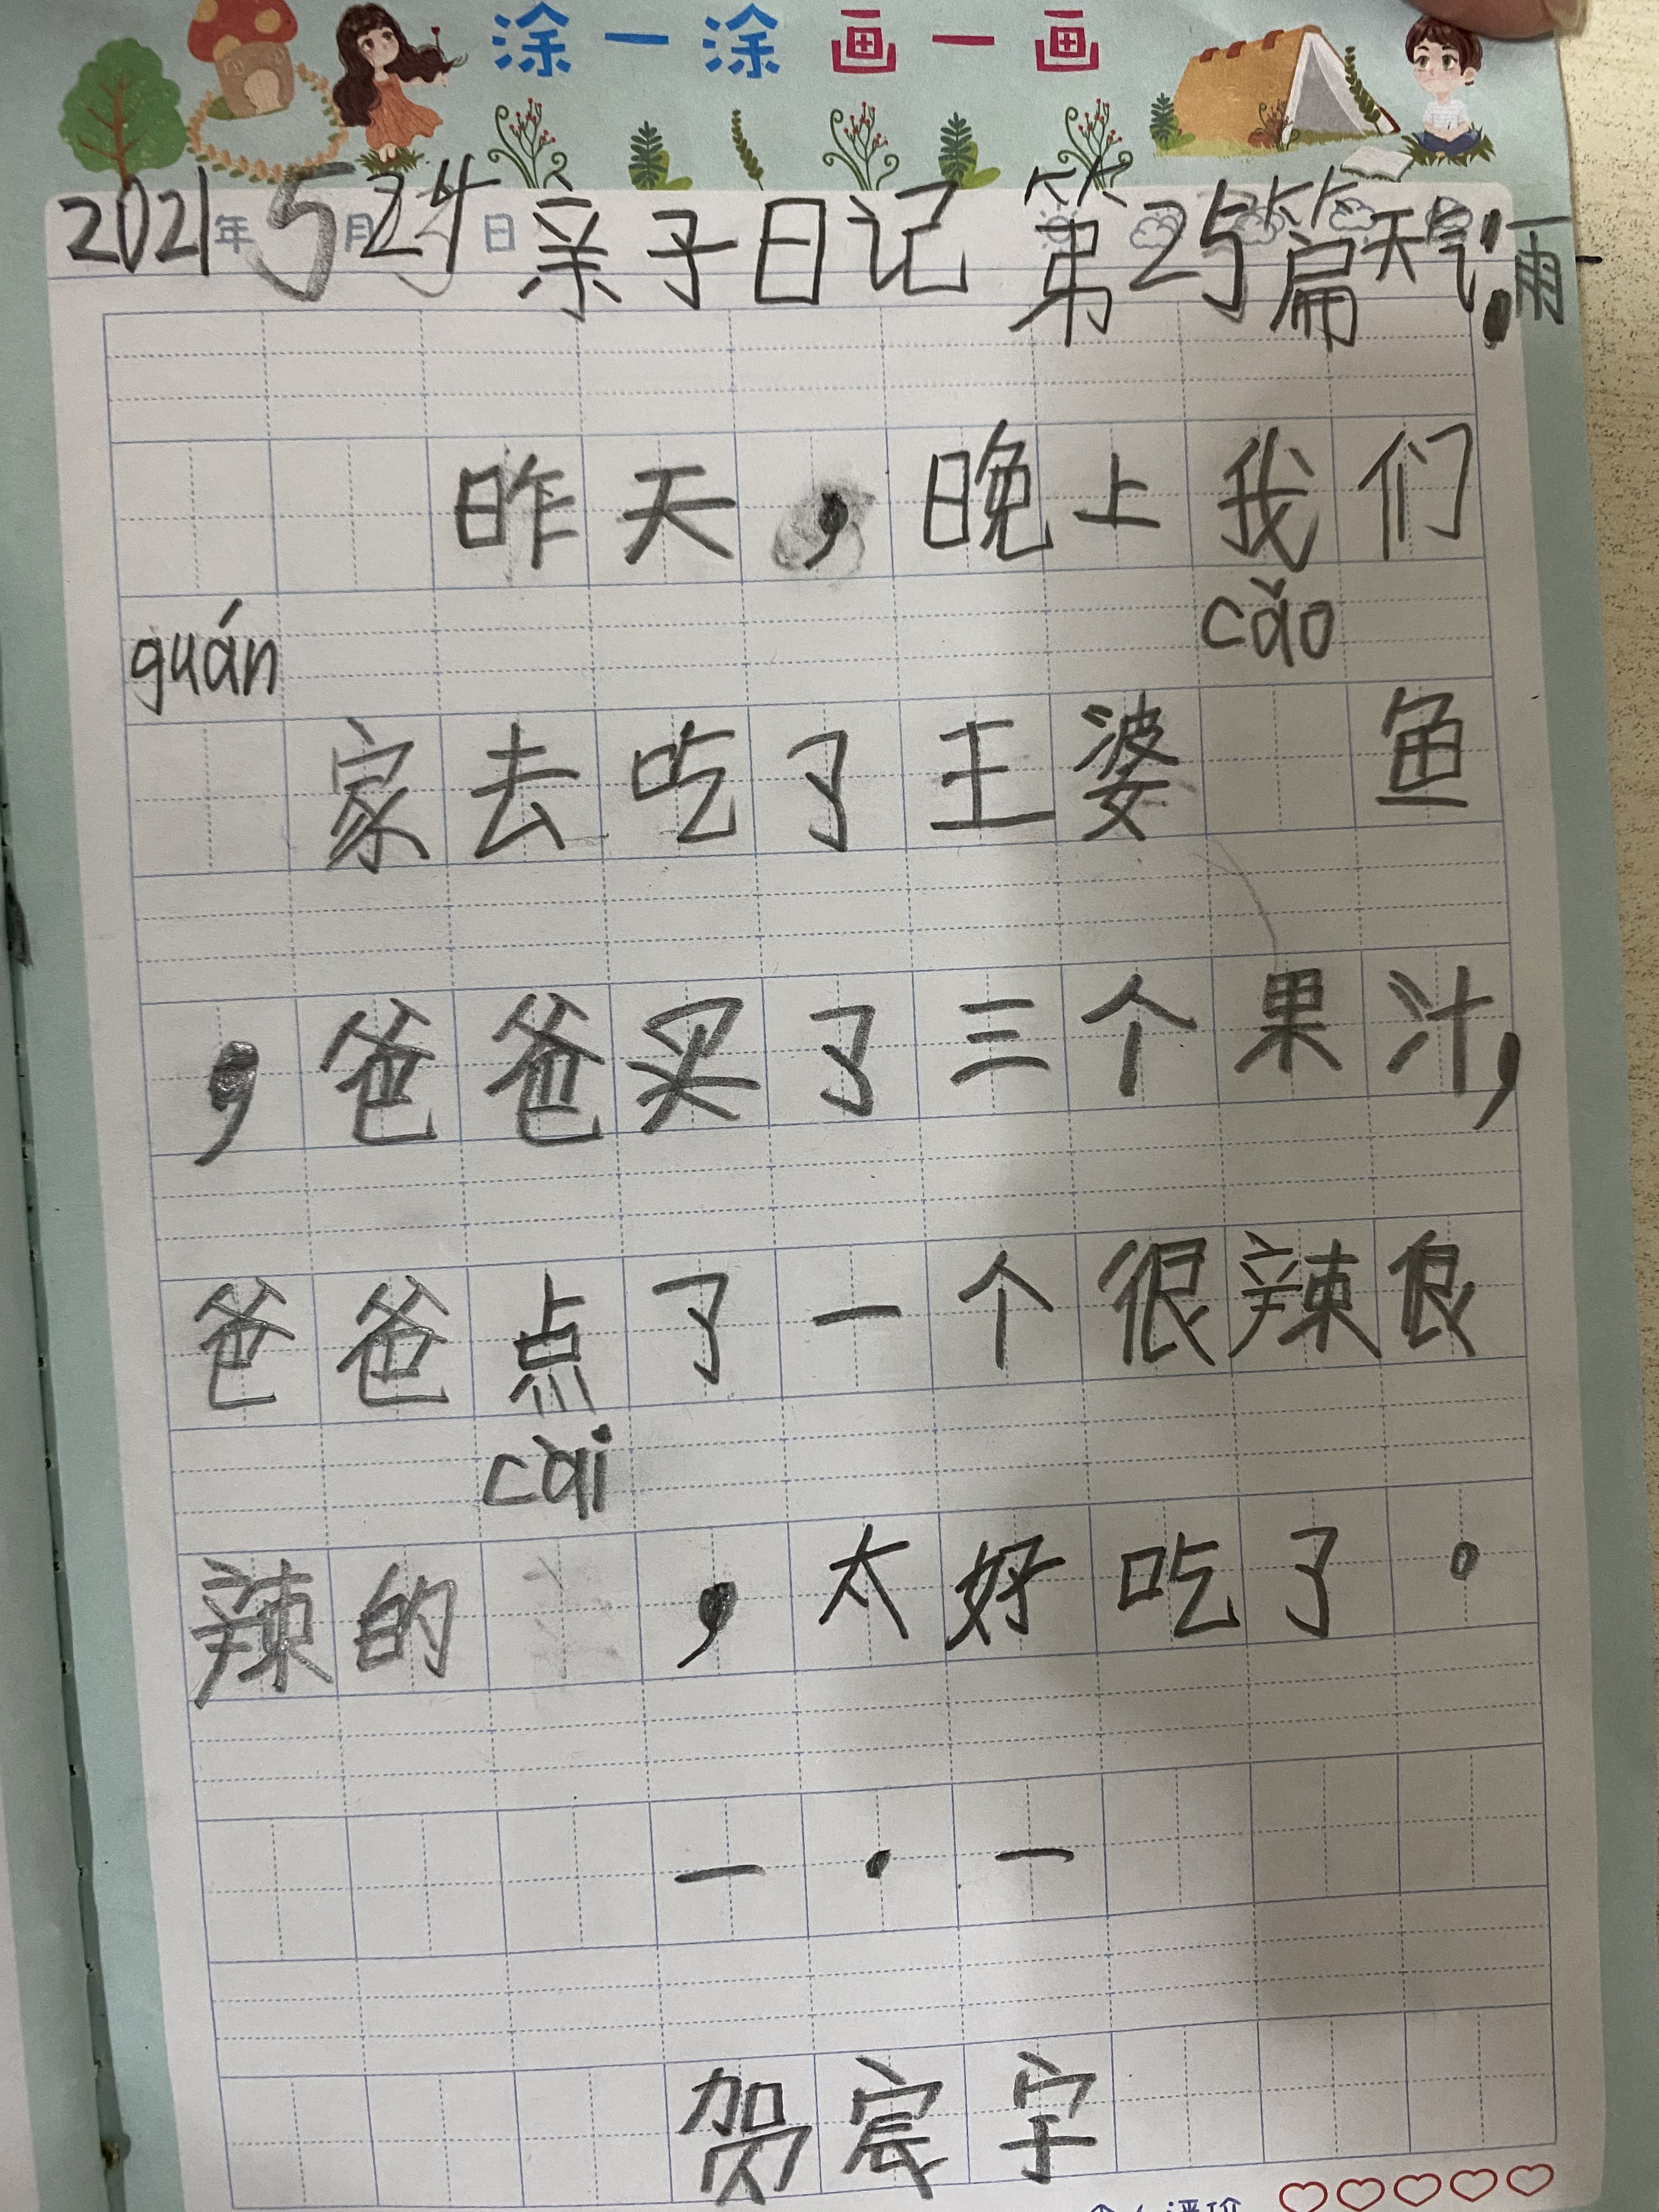 涂一涂 画一画
2021年5月24日亲子日记 第25篇天气:雨
昨天,晚上我们
guán cǎo
家去吃了王婆 鱼
,爸爸买了三个果汁,
爸爸点了一个很辣很
cài
辣的 ,太好吃了。
一·一
贺宸宇